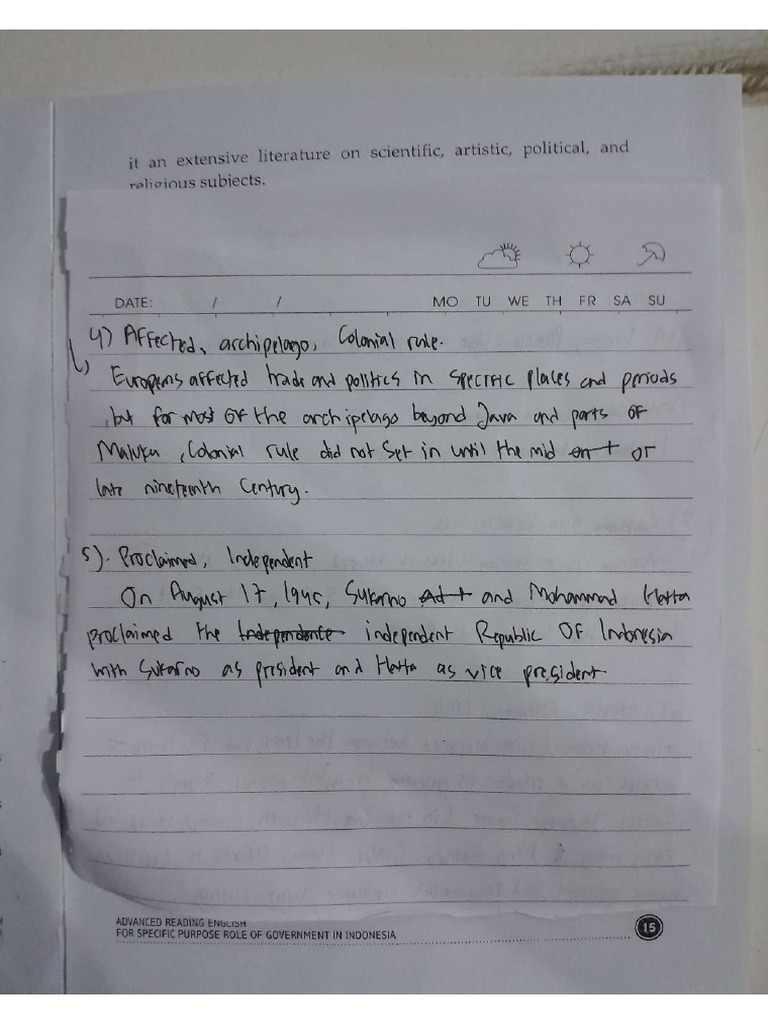 it an extensive literature on scientific, artistic, political, and
religious subjects.
DATE: / / MO TU WE TH FR SA SU
4) Affected, archipelago, Colonial rule.
Europens affected trade and politics in specific places and periods
, but for most of the archipelago beyond Java and parts of
Maluku, Colonial rule did not set in until the mid or
late nineteenth Century.
5). Proclaimed, Independent
On August 17, 1945, Sukarno and Mohammad Hatta
proclaimed the Independence independent Republic OF Indonesia
with Sukarno as president and Hatta as vice president
ADVANCED READING ENGLISH
FOR SPECIFIC PURPOSE ROLE OF GOVERNMENT IN INDONESIA
15